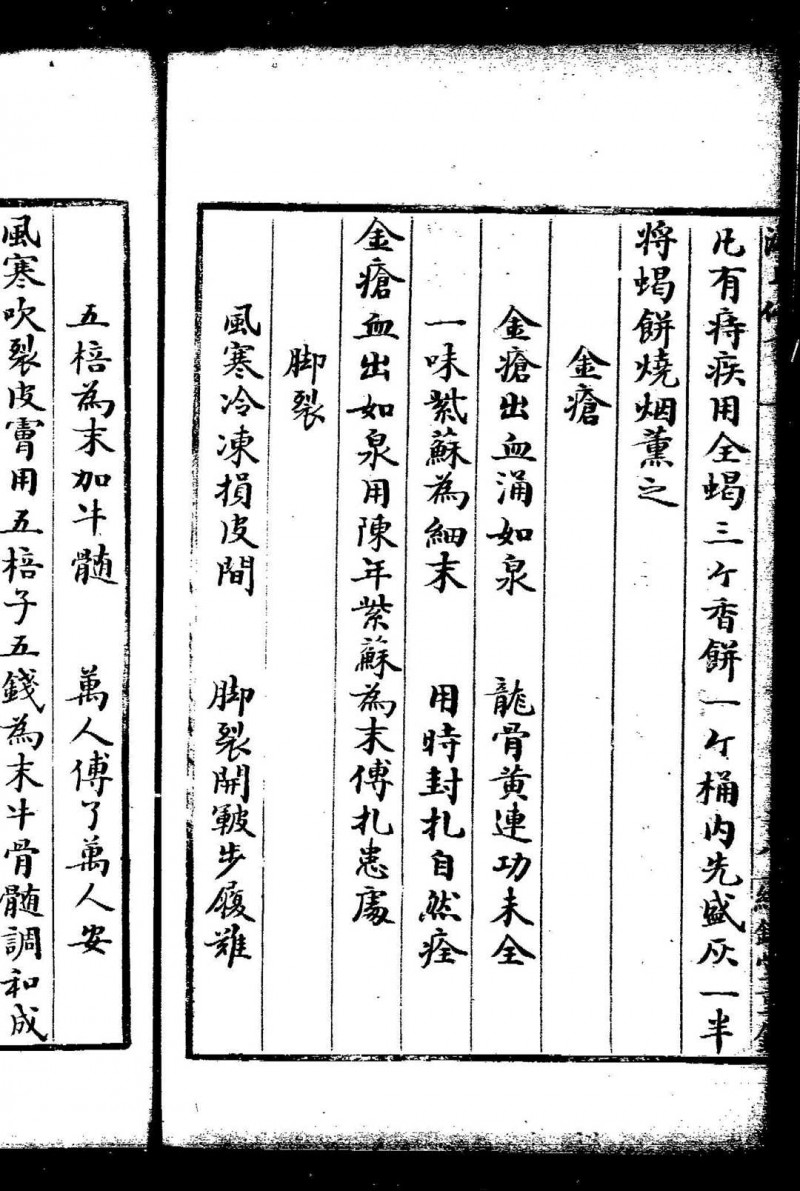 凡有痔疾用全蝎三个香餅一个桶内先盛灰一半
将蝎餅燒烟薰之
金瘡
金瘡出血涌如泉　龍骨黄連功未全
一味紫蘇為細末　用時封扎自然痊
金瘡血出如泉用陳年紫蘇為末傅扎患處
脚裂
風寒冷凍損皮間　脚裂開皸步履難
五棓為末加牛髄　萬人傅了萬人安
風寒吹裂皮膚用五棓子五錢為末牛骨髄調和成